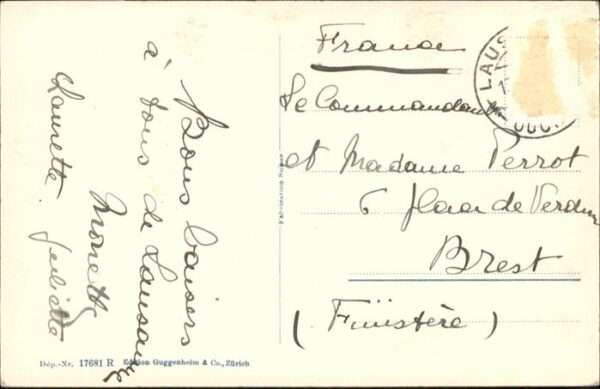 Bons baisers
à tous de Lausanne
Monette
Laurette Juliette
France
Le Commandant
et Madame Perrot
6 place de Verdun
Brest
(Finistère)
LAUS
Fabrication Suisse
Dép.-Nr. 17681 R Edition Guggenheim & Co., Zürich